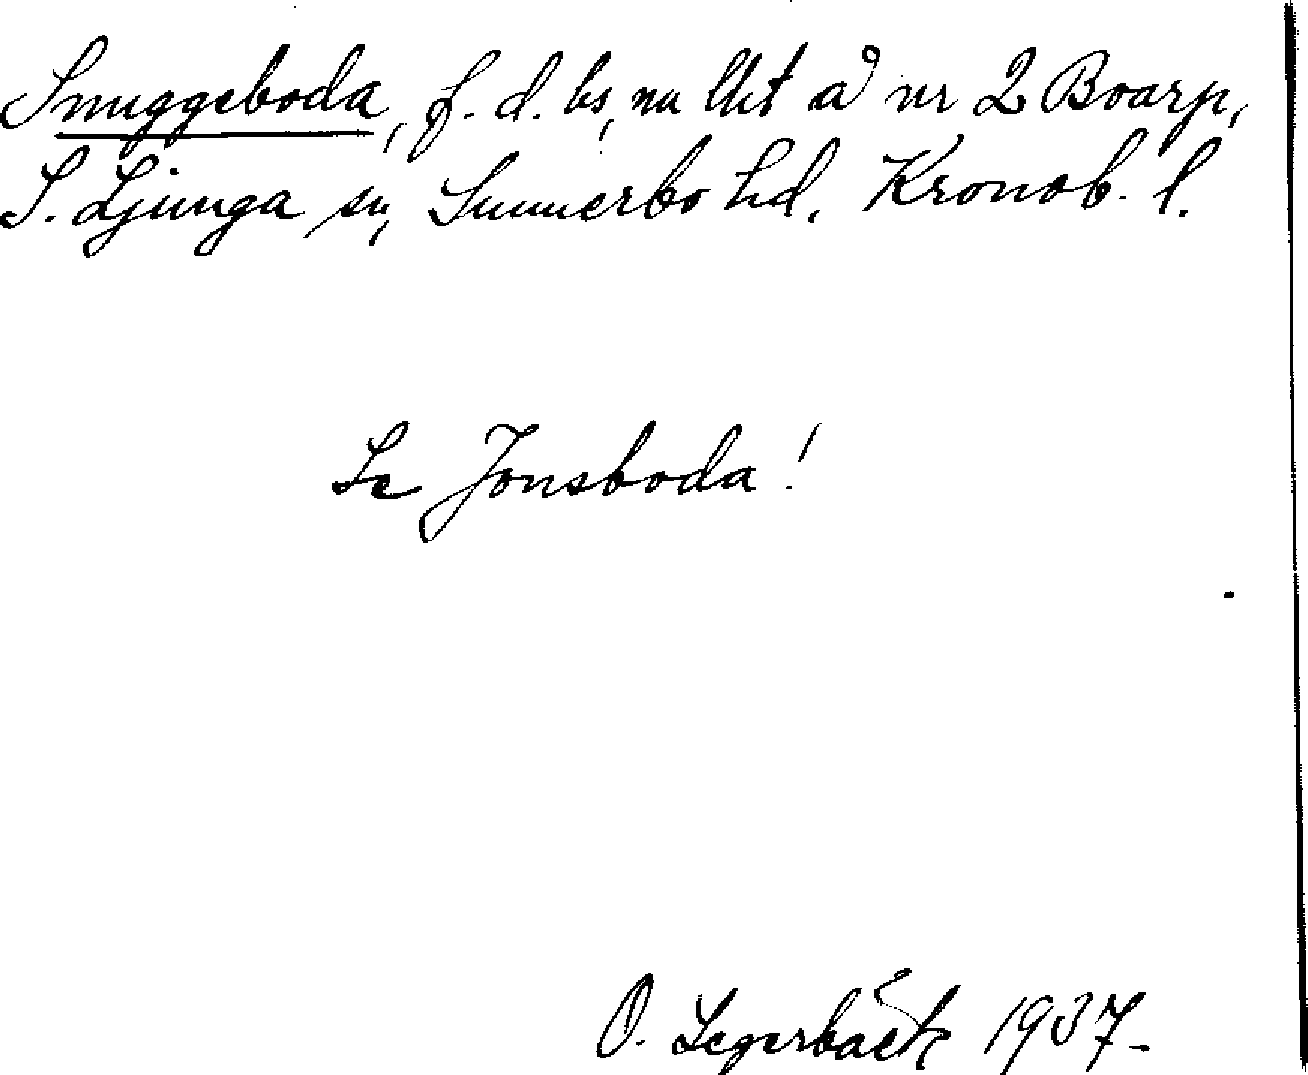 Snuggeboda, f. d. bs, nu lht å nr 2 Boarp,
S. Ljunga sn, Sunnerbo hd. Kronob. l.
Se Jonsboda!
O. Segerbäck 1937-